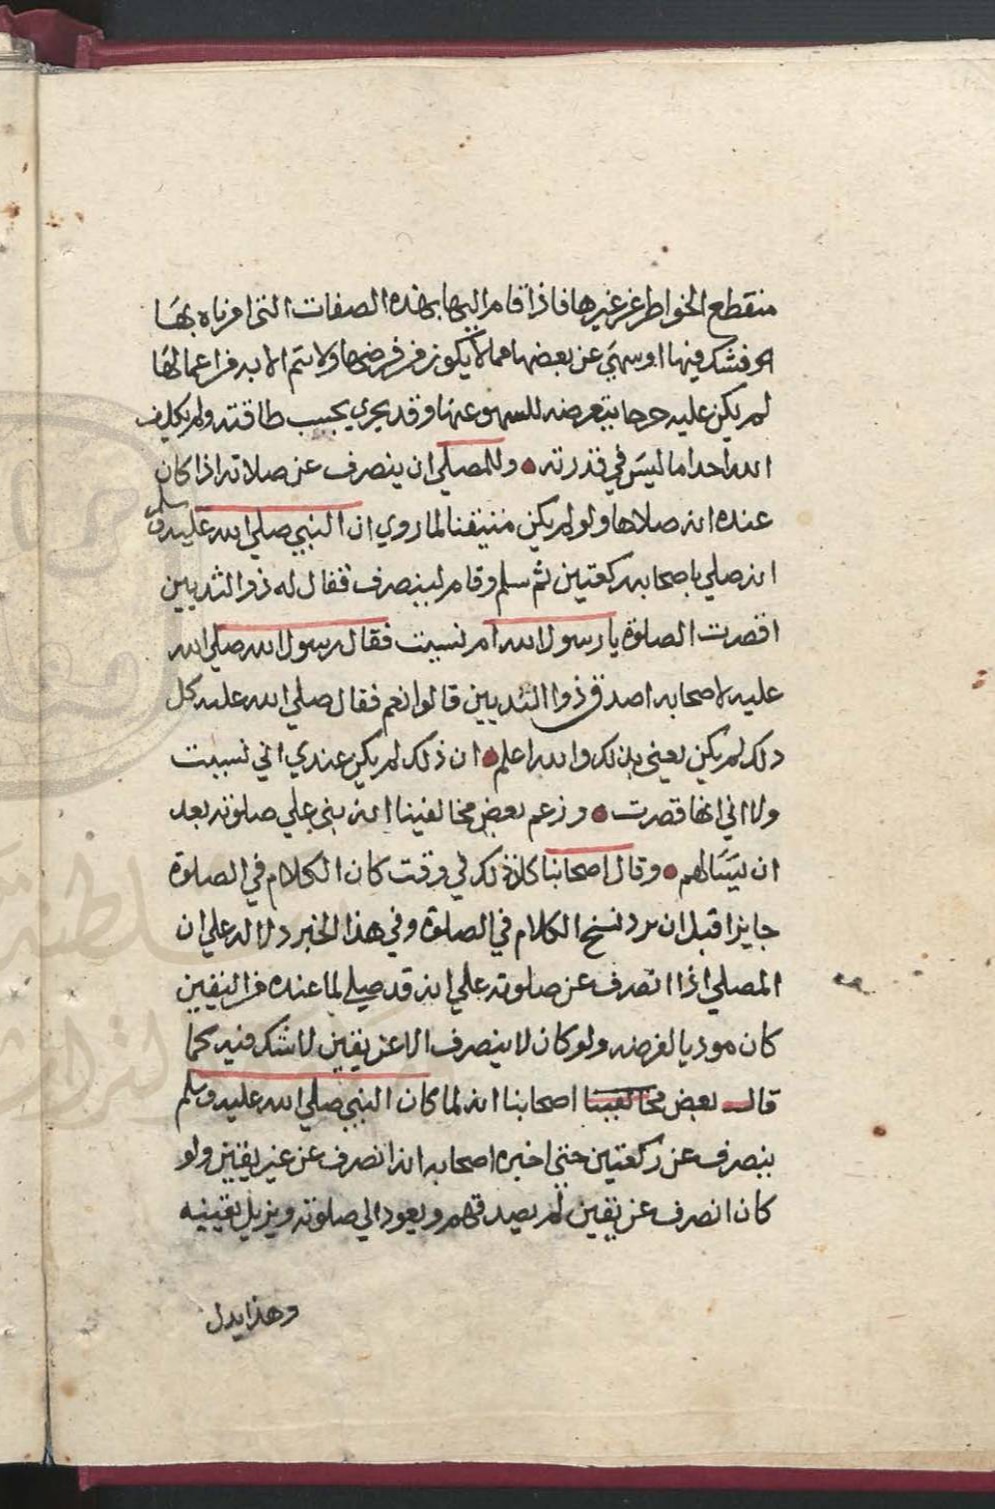 منقطع الخواطر عن غيرها فاذا قام اليها بهذه الصفات التي امرناه بها
فشك فيها او سهي عن بعضها مما لا يكون من فرضها ولا يتم الا به من اعمالها
لم يكن عليه حرجا بتعرضه للسهو عنها وقد يجري بحسب طاقته ولم يكلف
الله احدا ما ليس في قدرته • وللمصلي ان ينصرف عن صلاته اذا كان
عنده انه صلاها ولو لم يكن متيقنا لما روي ان النبي صلي الله عليه وسلم
انه صلي باصحابه ركعتين ثم سلم وقام لينصرف فقال له ذو الثديين
اقصرت الصلوة يا رسول الله ام نسيت فقال رسول الله صلي الله
عليه لاصحابه اصدق ذوا الثديين قالوا نعم فقال صلي الله عليه كل
ذلك لم يكن يعني بذلك والله اعلم • ان ذلك لم يكن عندي اني نسيت
ولا اني انها قصرت • وزعم بعض مخالفينا انه بني علي صلوته بعد
ان يسالهم • وقال اصحابنا كان ذلك في وقت كان الكلام في الصلوة
جايزا قبل ان يرد نسخ الكلام في الصلوة وفي هذا الخبر دلالة علي ان
المصلي اذا انصرف عن صلوته علي انه قد صلي لما عنده من اليقين
كان موديا لفرضه ولو كان لا ينصرف الا عن يقين لا شك فيه كما
قال بعض مخالفينا اصحابنا انه لما كان النبي صلي الله عليه وسلم
ينصرف عن ركعتين حتي اخبره اصحابه انه انصرف عن غير يقين ولو
كان انصرف عن يقين لم يصدقهم ويعود الي صلوته ويزيل يقينه
وهذا يدل